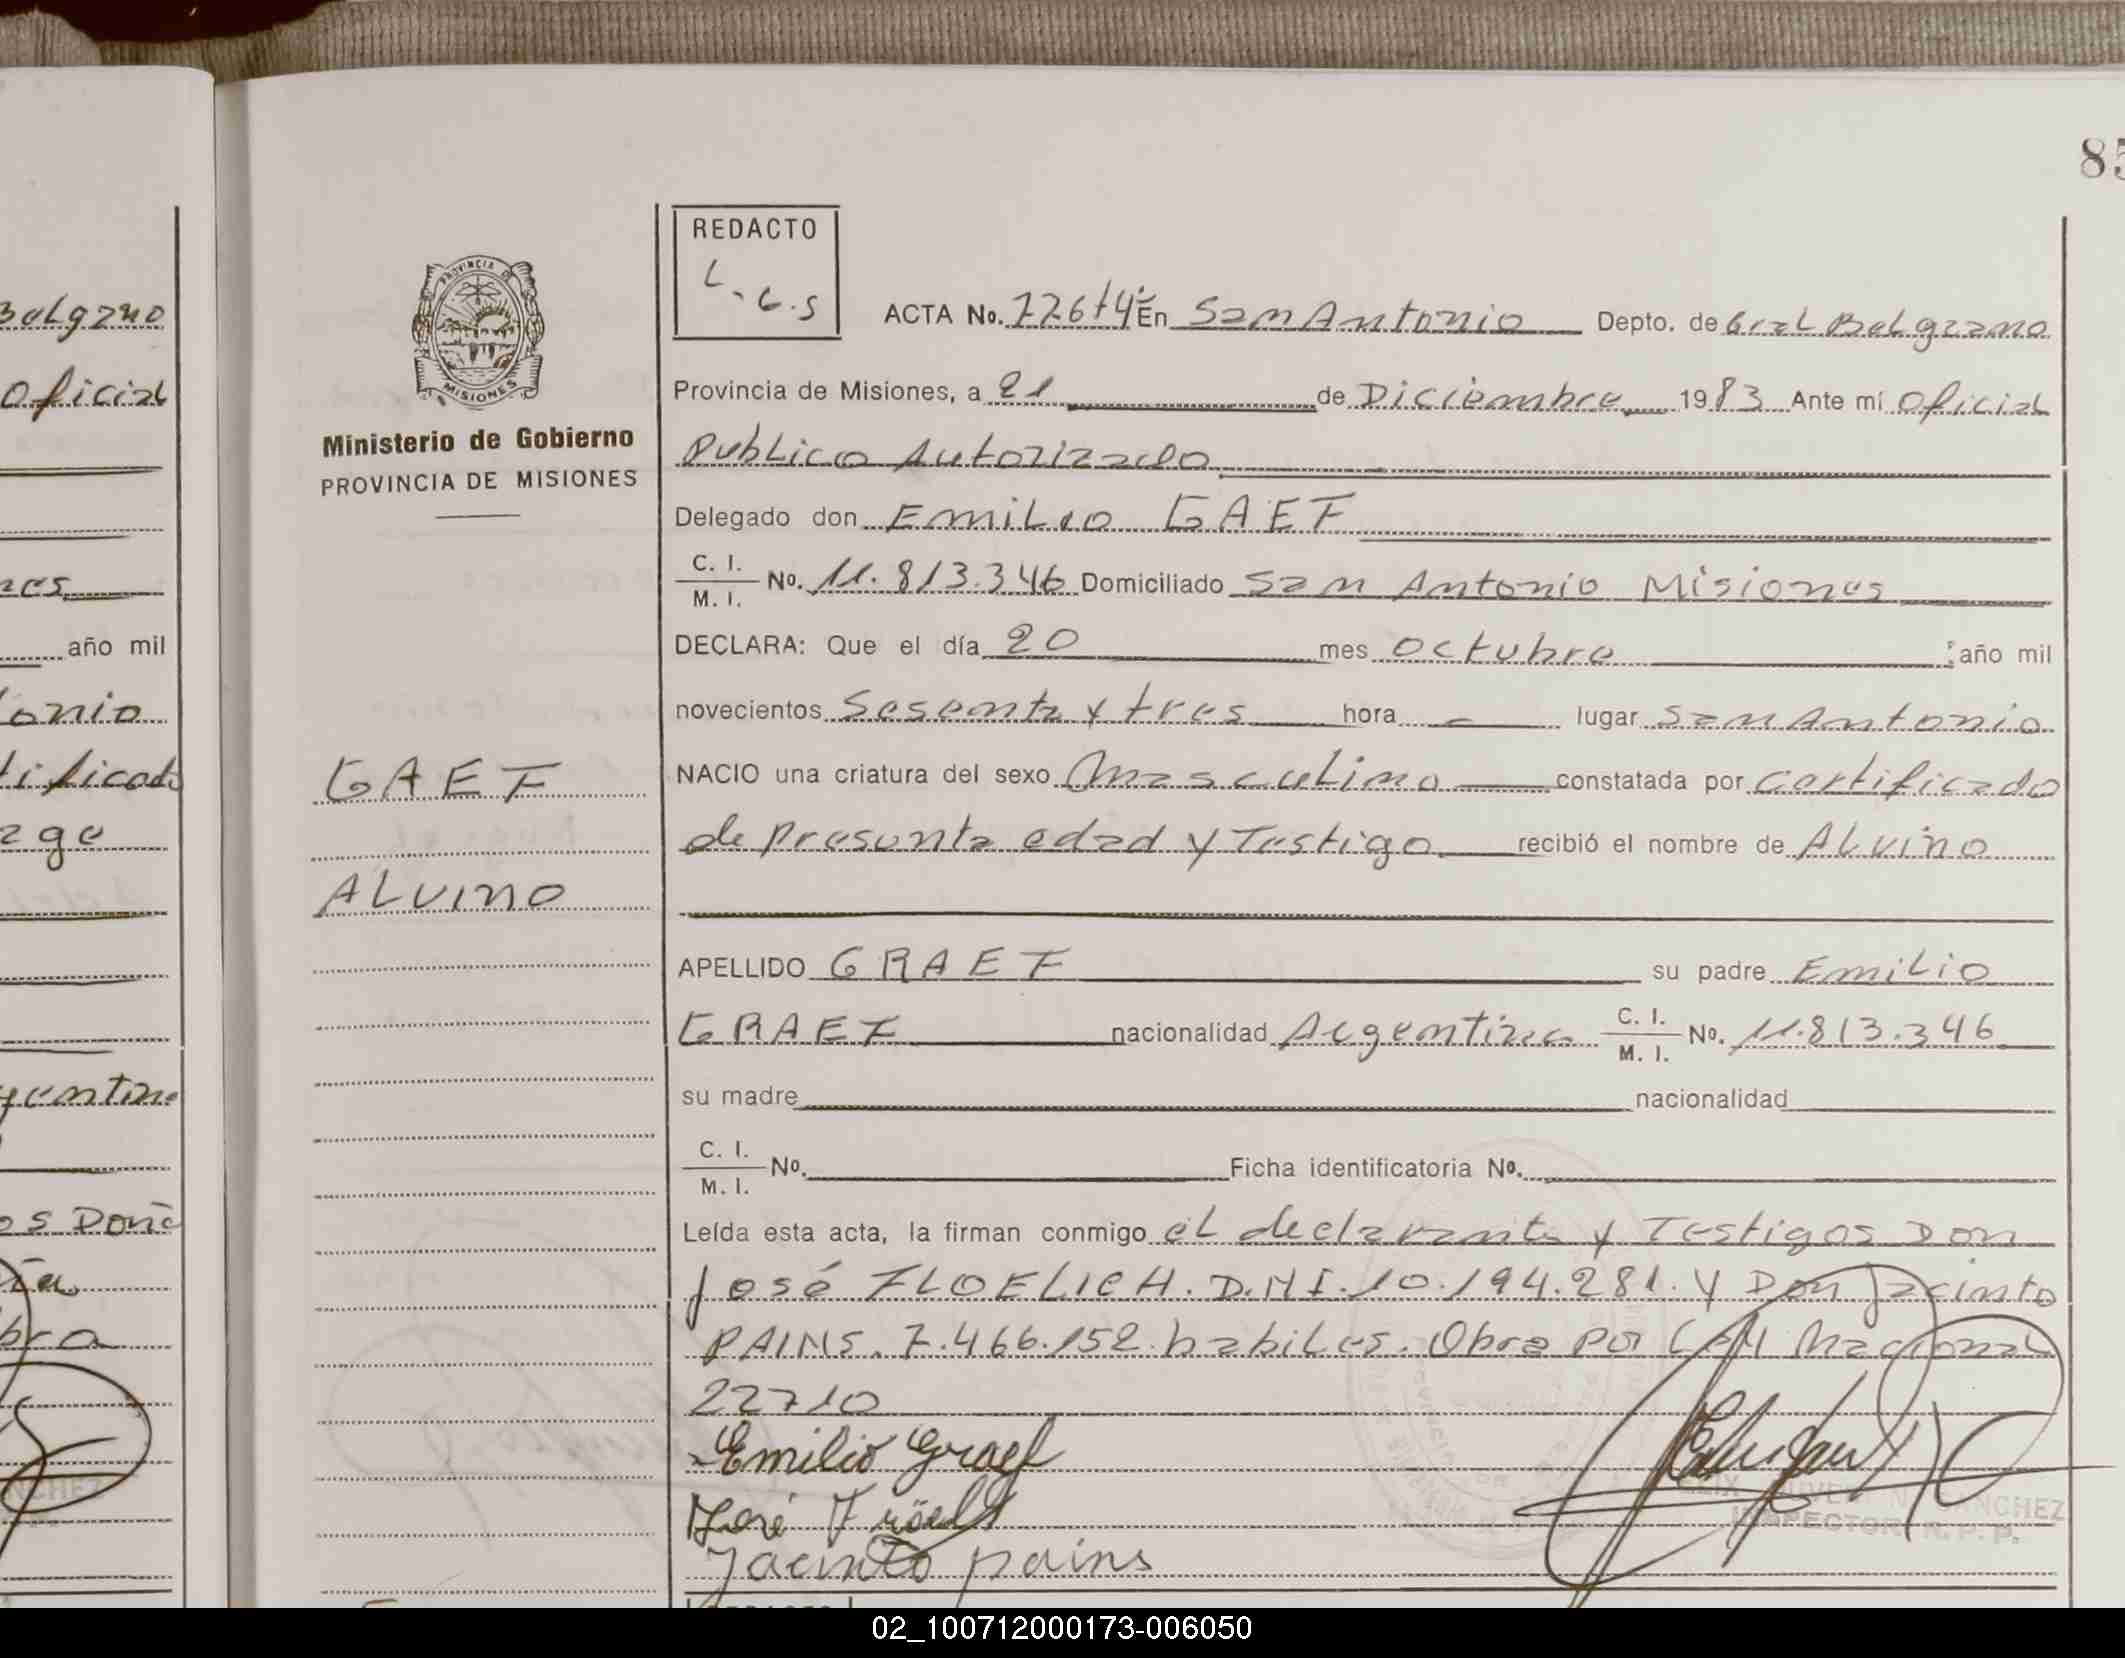 85
Balgrano
Oficial
nes
año mil
tonio
tificado
age
gentina
os Doña
bra
NCHEZ
PROVINCIA DE
MISIONES
Ministerio de Gobierno
PROVINCIA DE MISIONES
GAEF
ALVINO
REDACTO
L.G.S
ACTA No. En San Antonio Depto. de Gral Belgrano
Provincia de Misiones, a 21 de Diciembre 1983 Ante mí Oficial
Publico Autorizado
Delegado don Emilio GAEF
C. I. / M. I. No. 11.813.346 Domiciliado San Antonio Misiones
DECLARA: Que el día 20 mes octubre año mil
novecientos Sesenta y tres hora - lugar San Antonio
NACIO una criatura del sexo Masculino constatada por certificado
de presunta edad y Testigo recibió el nombre de ALvino
APELLIDO GRAEF su padre Emilio
GRAEF nacionalidad Argentina C. I. / M. I. No. 11.813.346
su madre nacionalidad
C. I. / M. I. No. Ficha identificatoria No.
Leída esta acta, la firman conmigo el declarante y Testigos Don
José FLOELICH. D.N.I. 10.194.281. y Don Jacinto
PAINS. 7.466.152 habiles. Obra por Ley Nacional
22710
Emilio Graef
José Fröel
Jacinto pains
SANCHEZ
INSPECTOR R. P. P.
02_100712000173-006050